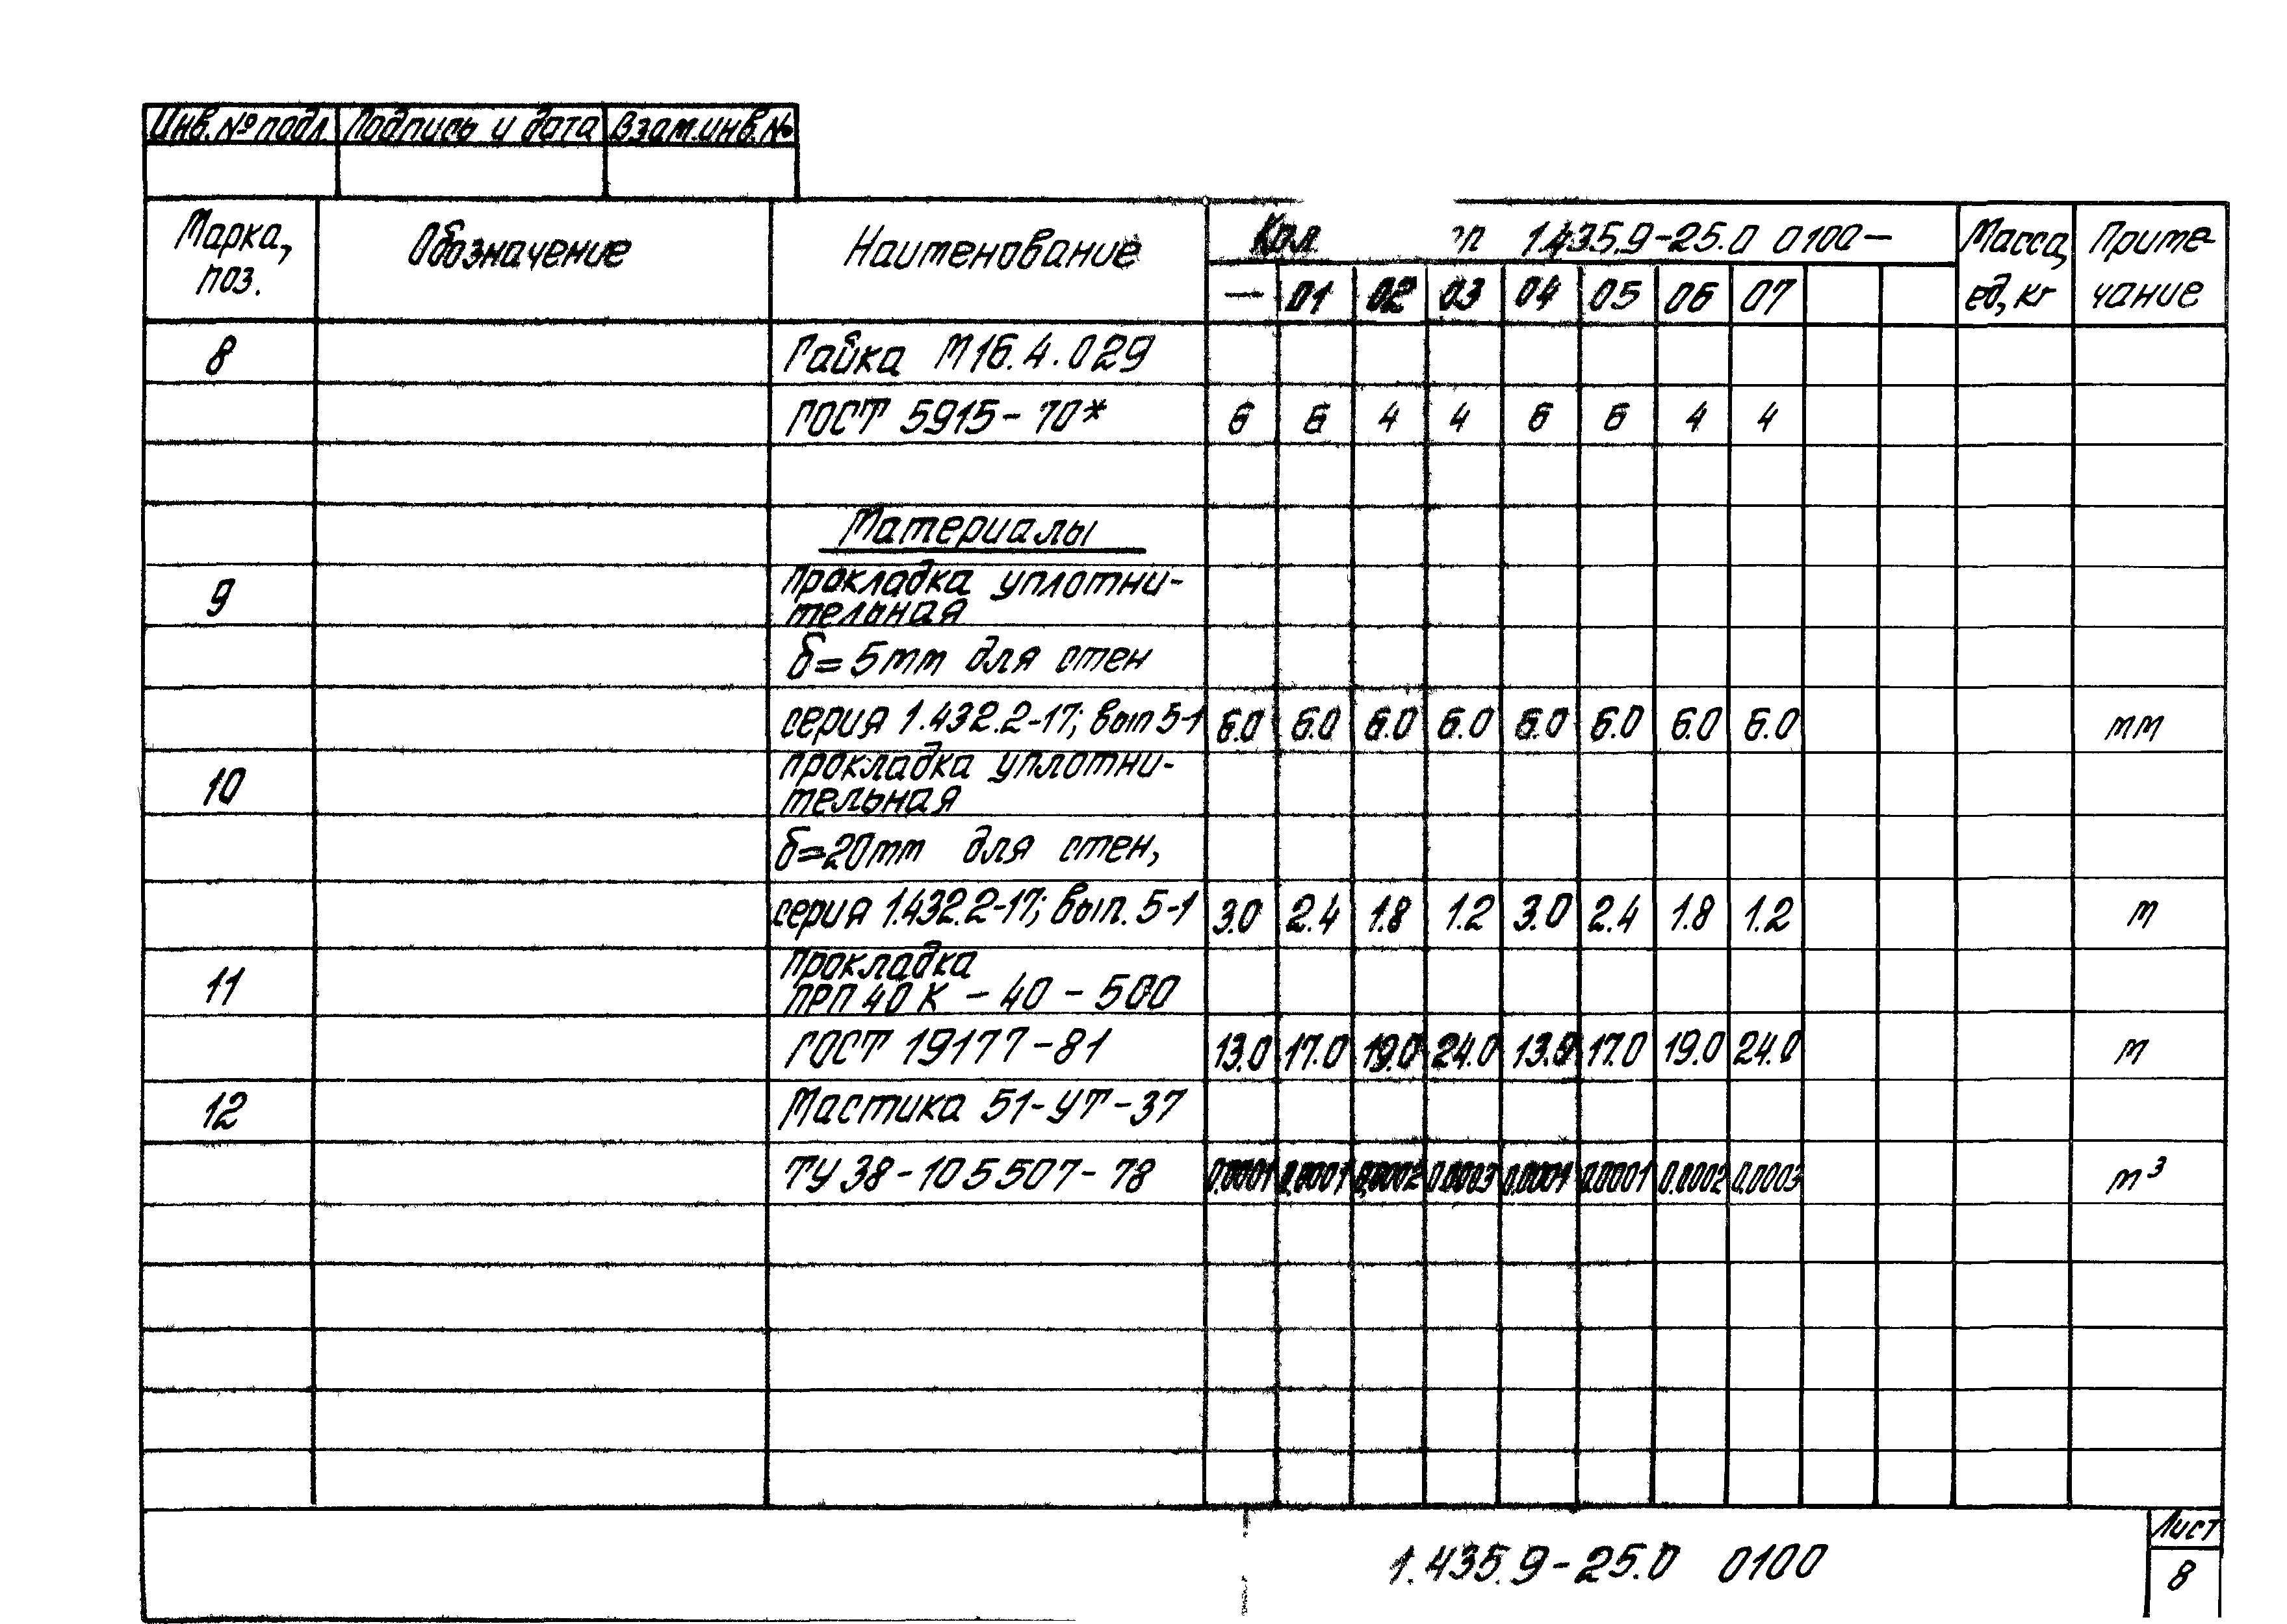 Инв. № подл. Подпись и дата Взам. инв. №
Марка, Обозначение Наименование Кол. 1.435.9-25.0 0100- Масса Приме-
поз. — 01 02 03 04 05 06 07 ед, кг чание
8 Гайка М16.4.029
ГОСТ 5915-70* 6 6 4 4 6 6 4 4
Материалы
9 Прокладка уплотни-
тельная
δ=5мм для стен
серия 1.432.2-17; вып 5-1 6.0 6.0 6.0 6.0 6.0 6.0 6.0 6.0 мм
10 Прокладка уплотни-
тельная
δ=20мм для стен,
серия 1.432.2-17; вып. 5-1 3.0 2.4 1.8 1.2 3.0 2.4 1.8 1.2 м
11 Прокладка
ПРП 40 К - 40 - 500
ГОСТ 19177-81 13.0 17.0 19.0 24.0 13.0 17.0 19.0 24.0 м
12 Мастика 51-УТ-37
ТУ 38-105507-78 0.0001 0.0001 0.0002 0.0003 0.0001 0.0001 0.0002 0.0003 м³
1.435.9-25.0 0100
Лист
8